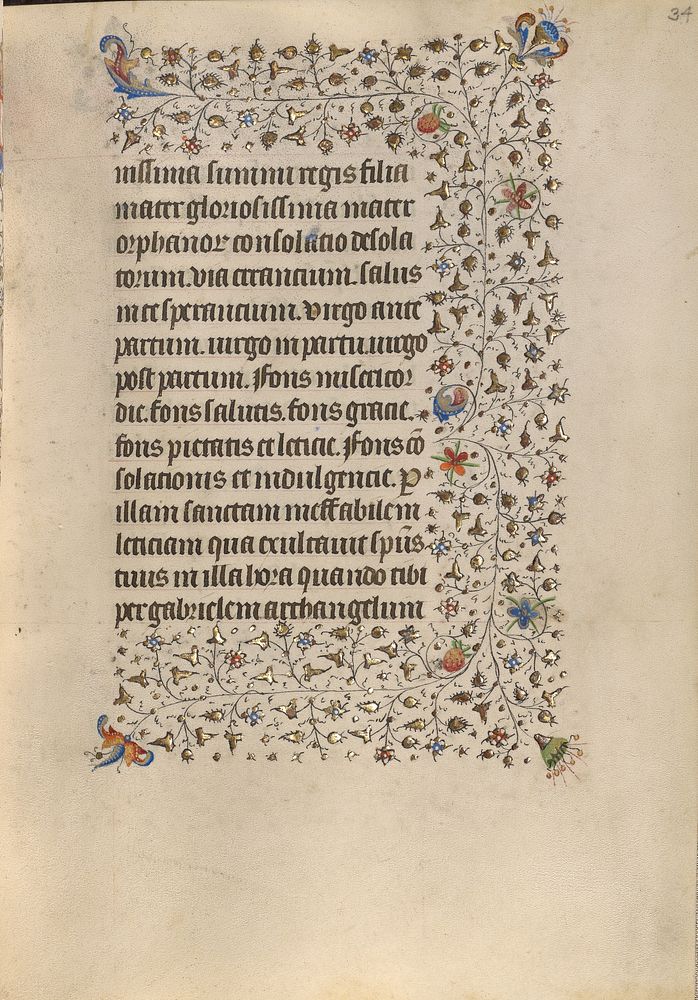 34
nissima summi regis filia
mater gloriosissima mater
orphanoꝝ consolatio desola
torum. via errantium. salus
in te sperantium. virgo ante
partum. uirgo in partu. uirgo
post partum. Fons misericor
die. fons salutis. fons gracie.
fons pietatis et leticie. Fons cō
solationis et indulgencie. P
illam sanctam ineffabilem
leticiam qua exultauit sp̄us
tuus in illa hora quando tibi
per gabrielem archangelum